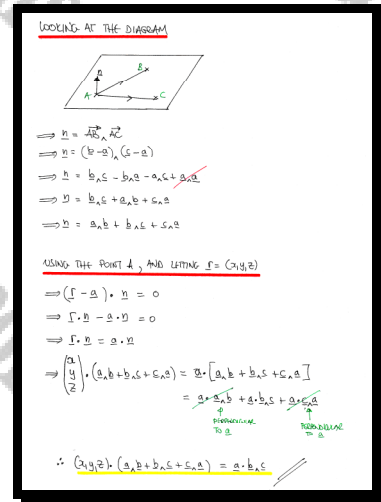 LOOKING AT THE DIAGRAM
n
B
A
C
⟹ n = AB ∧ AC
⟹ n = (b - a) ∧ (c - a)
⟹ n = b∧c - b∧a - a∧c + a∧a
⟹ n = b∧c + a∧b + c∧a
⟹ n = a∧b + b∧c + c∧a
USING THE POINT A, AND LETTING r = (x,y,z)
⟹ (r - a) • n = 0
⟹ r • n - a • n = 0
⟹ r • n = a • n
⟹ (x y z) • (a∧b + b∧c + c∧a) = a • [a∧b + b∧c + c∧a]
= a • a∧b + a • b∧c + a • c∧a
PERPENDICULAR TO a
PERPENDICULAR TO a
∴ (x,y,z) • (a∧b + b∧c + c∧a) = a • b∧c